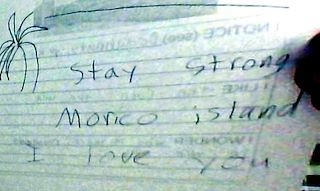 Stay Strong
Morico island
I love you